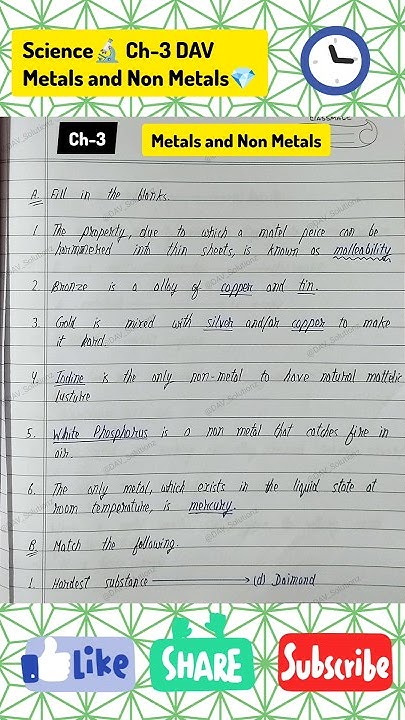 Science🔬 Ch-3 DAV
Metals and Non Metals💎
CLASSMATE
Ch-3
Metals and Non Metals
A. Fill in the blanks.
1. The property, due to which a matel peice can be
hammered into thin sheets, is known as malleability
2. Bronze is a alloy of copper and tin.
3. Gold is mixed with silver and/or copper to make
it hard.
4. Iodine is the only non-metal to have natural mattelic
lusture
5. White Phosphorus is a non metal that catches fire in
air.
6. The only metal, which exists in the liquid state at
room temperature, is mercury.
B. Match the following.
1. Hardest substance → (d) Daimand
@DAV_Solutionz
Like
SHARE
Subscribe